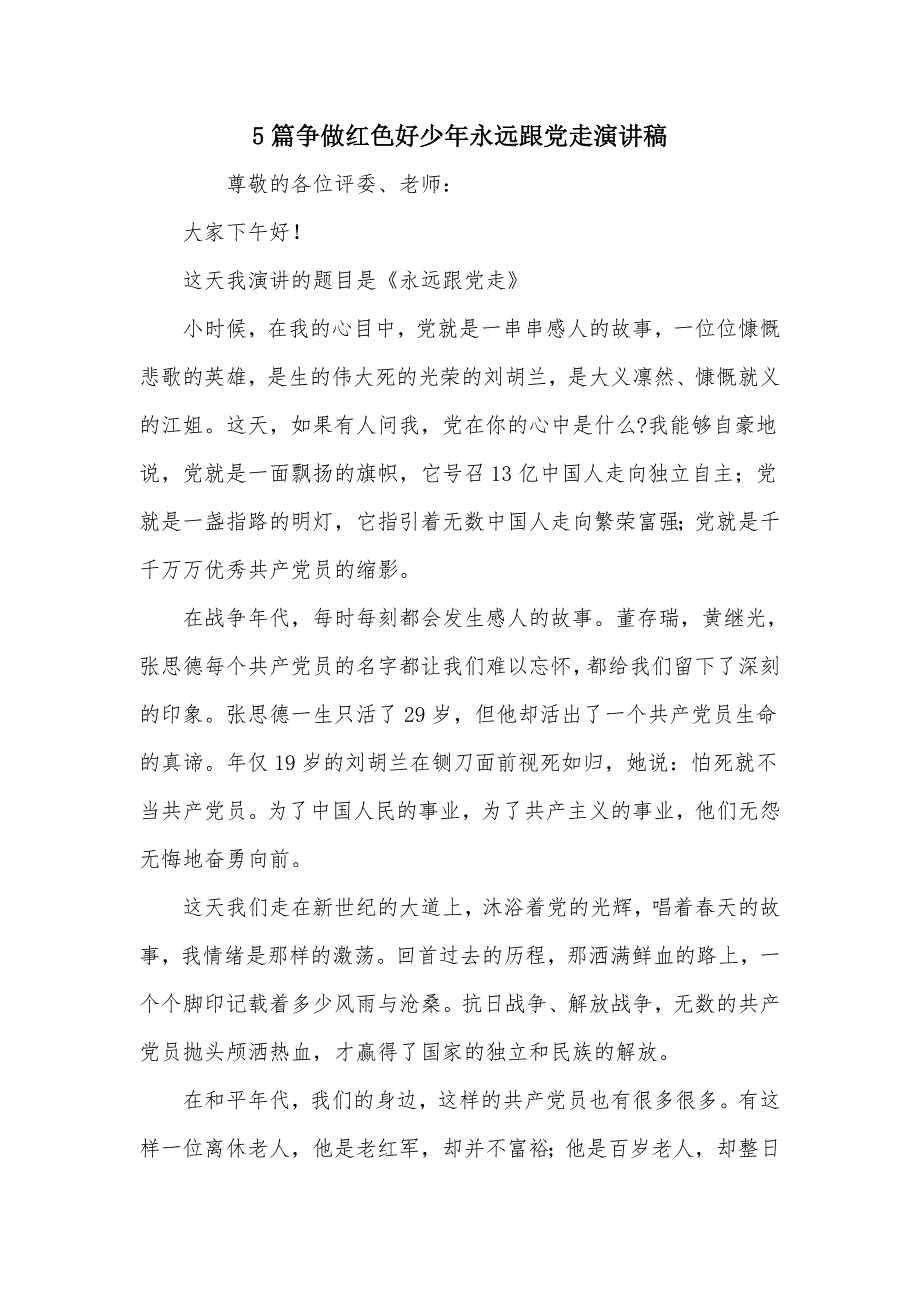 5篇争做红色好少年永远跟党走演讲稿
尊敬的各位评委、老师：
大家下午好！
这天我演讲的题目是《永远跟党走》
小时候，在我的心目中，党就是一串串感人的故事，一位位慷慨
悲歌的英雄，是生的伟大死的光荣的刘胡兰，是大义凛然、慷慨就义
的江姐。这天，如果有人问我，党在你的心中是什么?我能够自豪地
说，党就是一面飘扬的旗帜，它号召13亿中国人走向独立自主；党
就是一盏指路的明灯，它指引着无数中国人走向繁荣富强；党就是千
千万万优秀共产党员的缩影。
在战争年代，每时每刻都会发生感人的故事。董存瑞，黄继光，
张思德每个共产党员的名字都让我们难以忘怀，都给我们留下了深刻
的印象。张思德一生只活了29岁，但他却活出了一个共产党员生命
的真谛。年仅19岁的刘胡兰在铡刀面前视死如归，她说：怕死就不
当共产党员。为了中国人民的事业，为了共产主义的事业，他们无怨
无悔地奋勇向前。
这天我们走在新世纪的大道上，沐浴着党的光辉，唱着春天的故
事，我情绪是那样的激荡。回首过去的历程，那洒满鲜血的路上，一
个个脚印记载着多少风雨与沧桑。抗日战争、解放战争，无数的共产
党员抛头颅洒热血，才赢得了国家的独立和民族的解放。
在和平年代，我们的身边，这样的共产党员也有很多很多。有这
样一位离休老人，他是老红军，却并不富裕；他是百岁老人，却整日